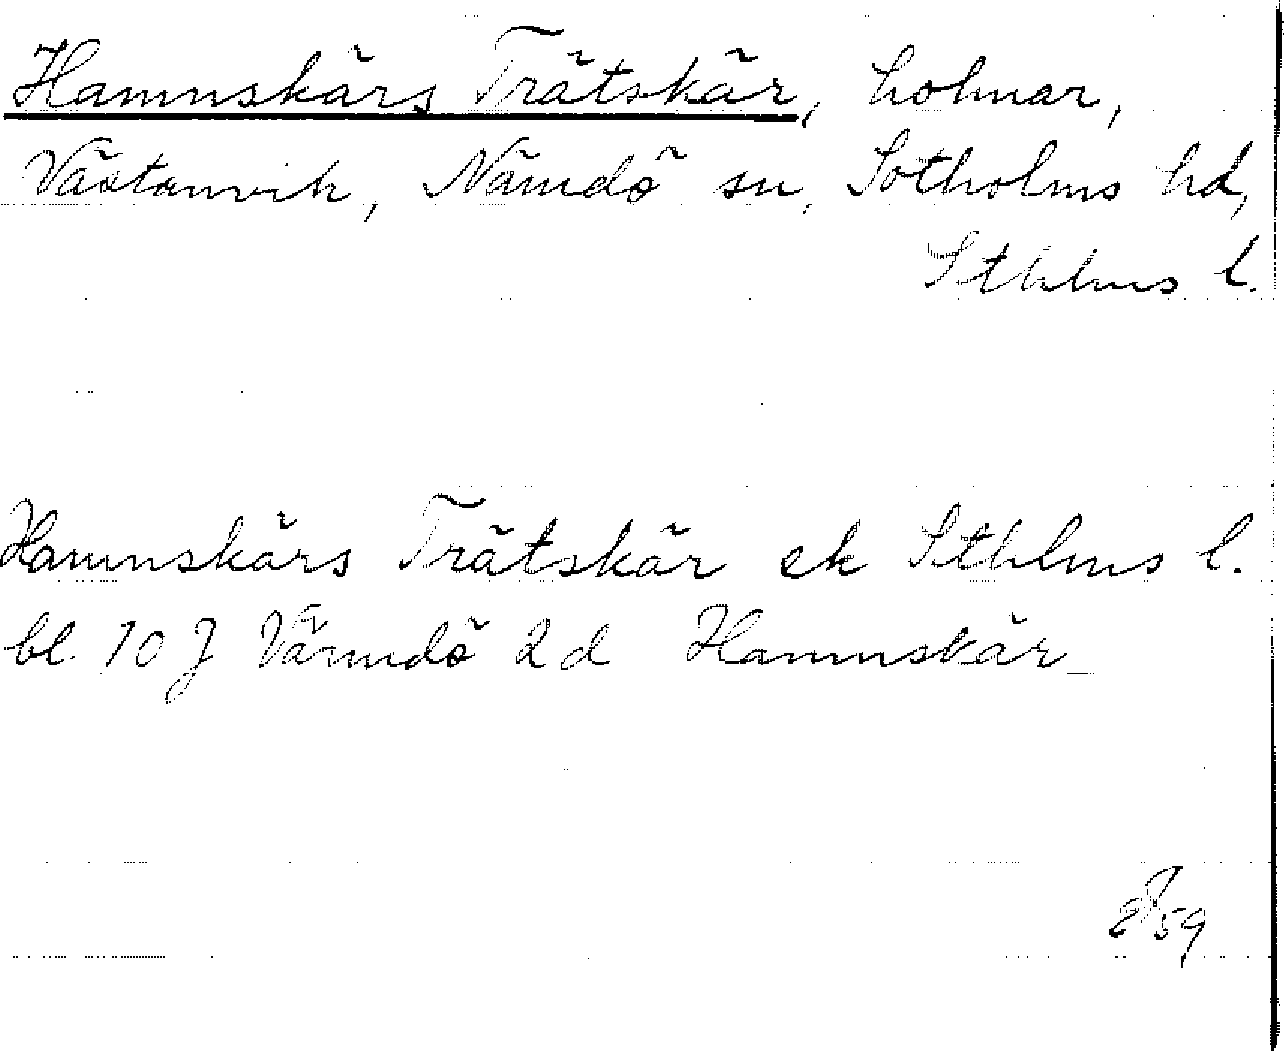 Hamnskärs Trätskär, holmar,
Västanvik, Nämdö sn, Sotholms hd,
Sthlms l.
Hamnskärs Trätskär ek Sthlms l.
bl. 10 J Värmdö 2d Hamnskär
59